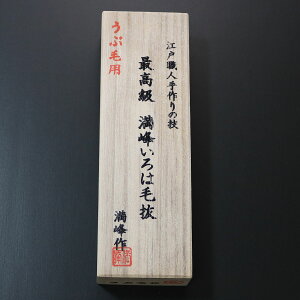 江戸職人手作りの技
最高級 満峰いろは毛抜
満峰作
うぶ毛用